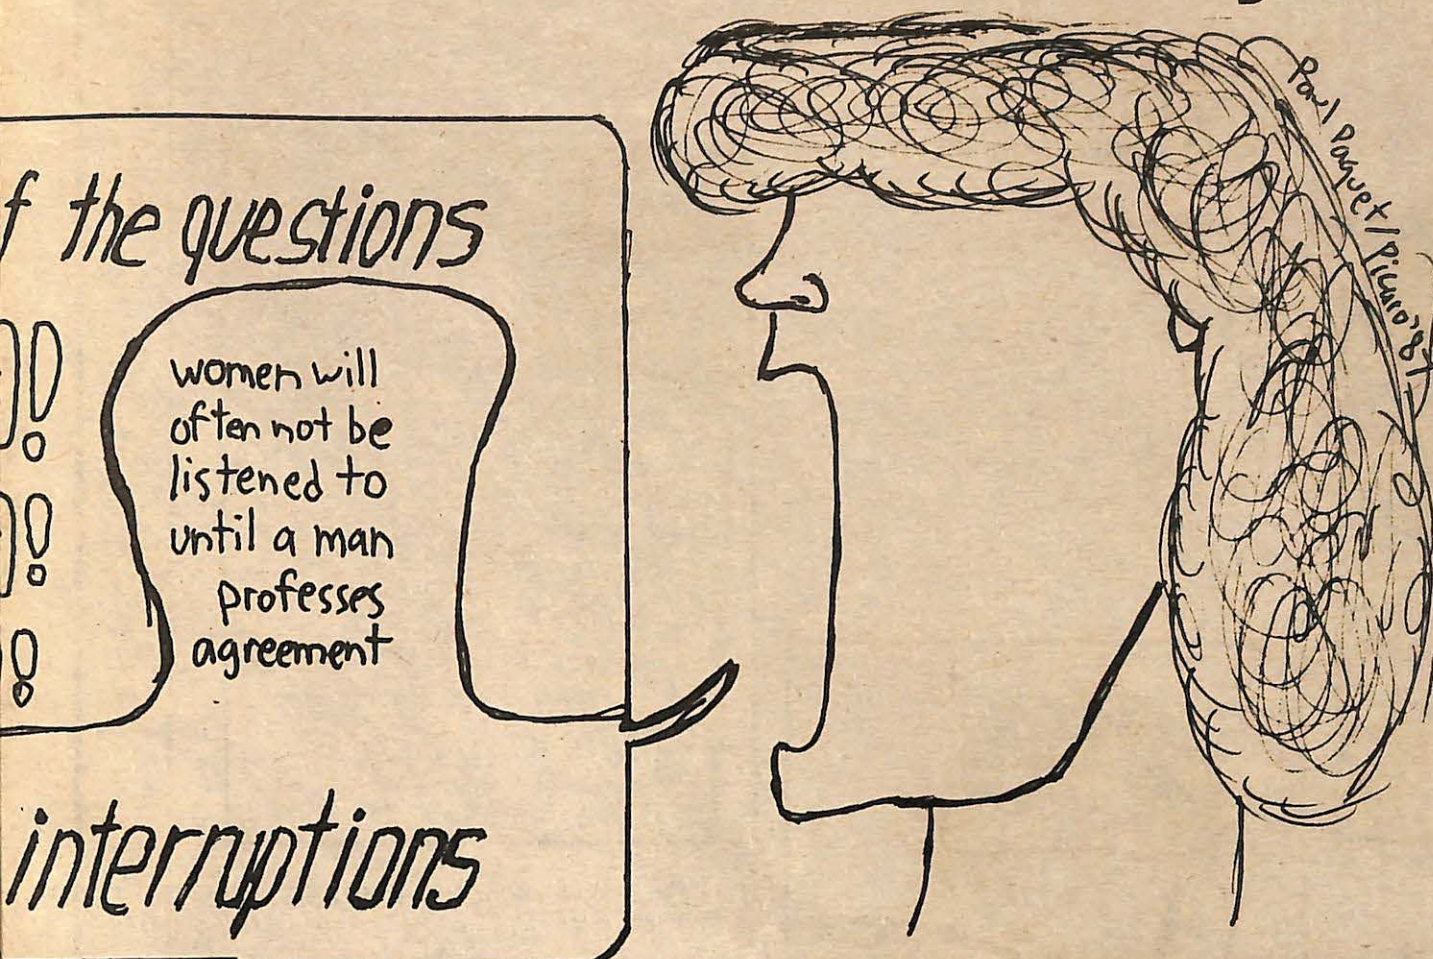 f the questions
!
women will
often not be
listened to
until a man
professes
agreement
!
!
interruptions
Paul Paquet/Picaro '87